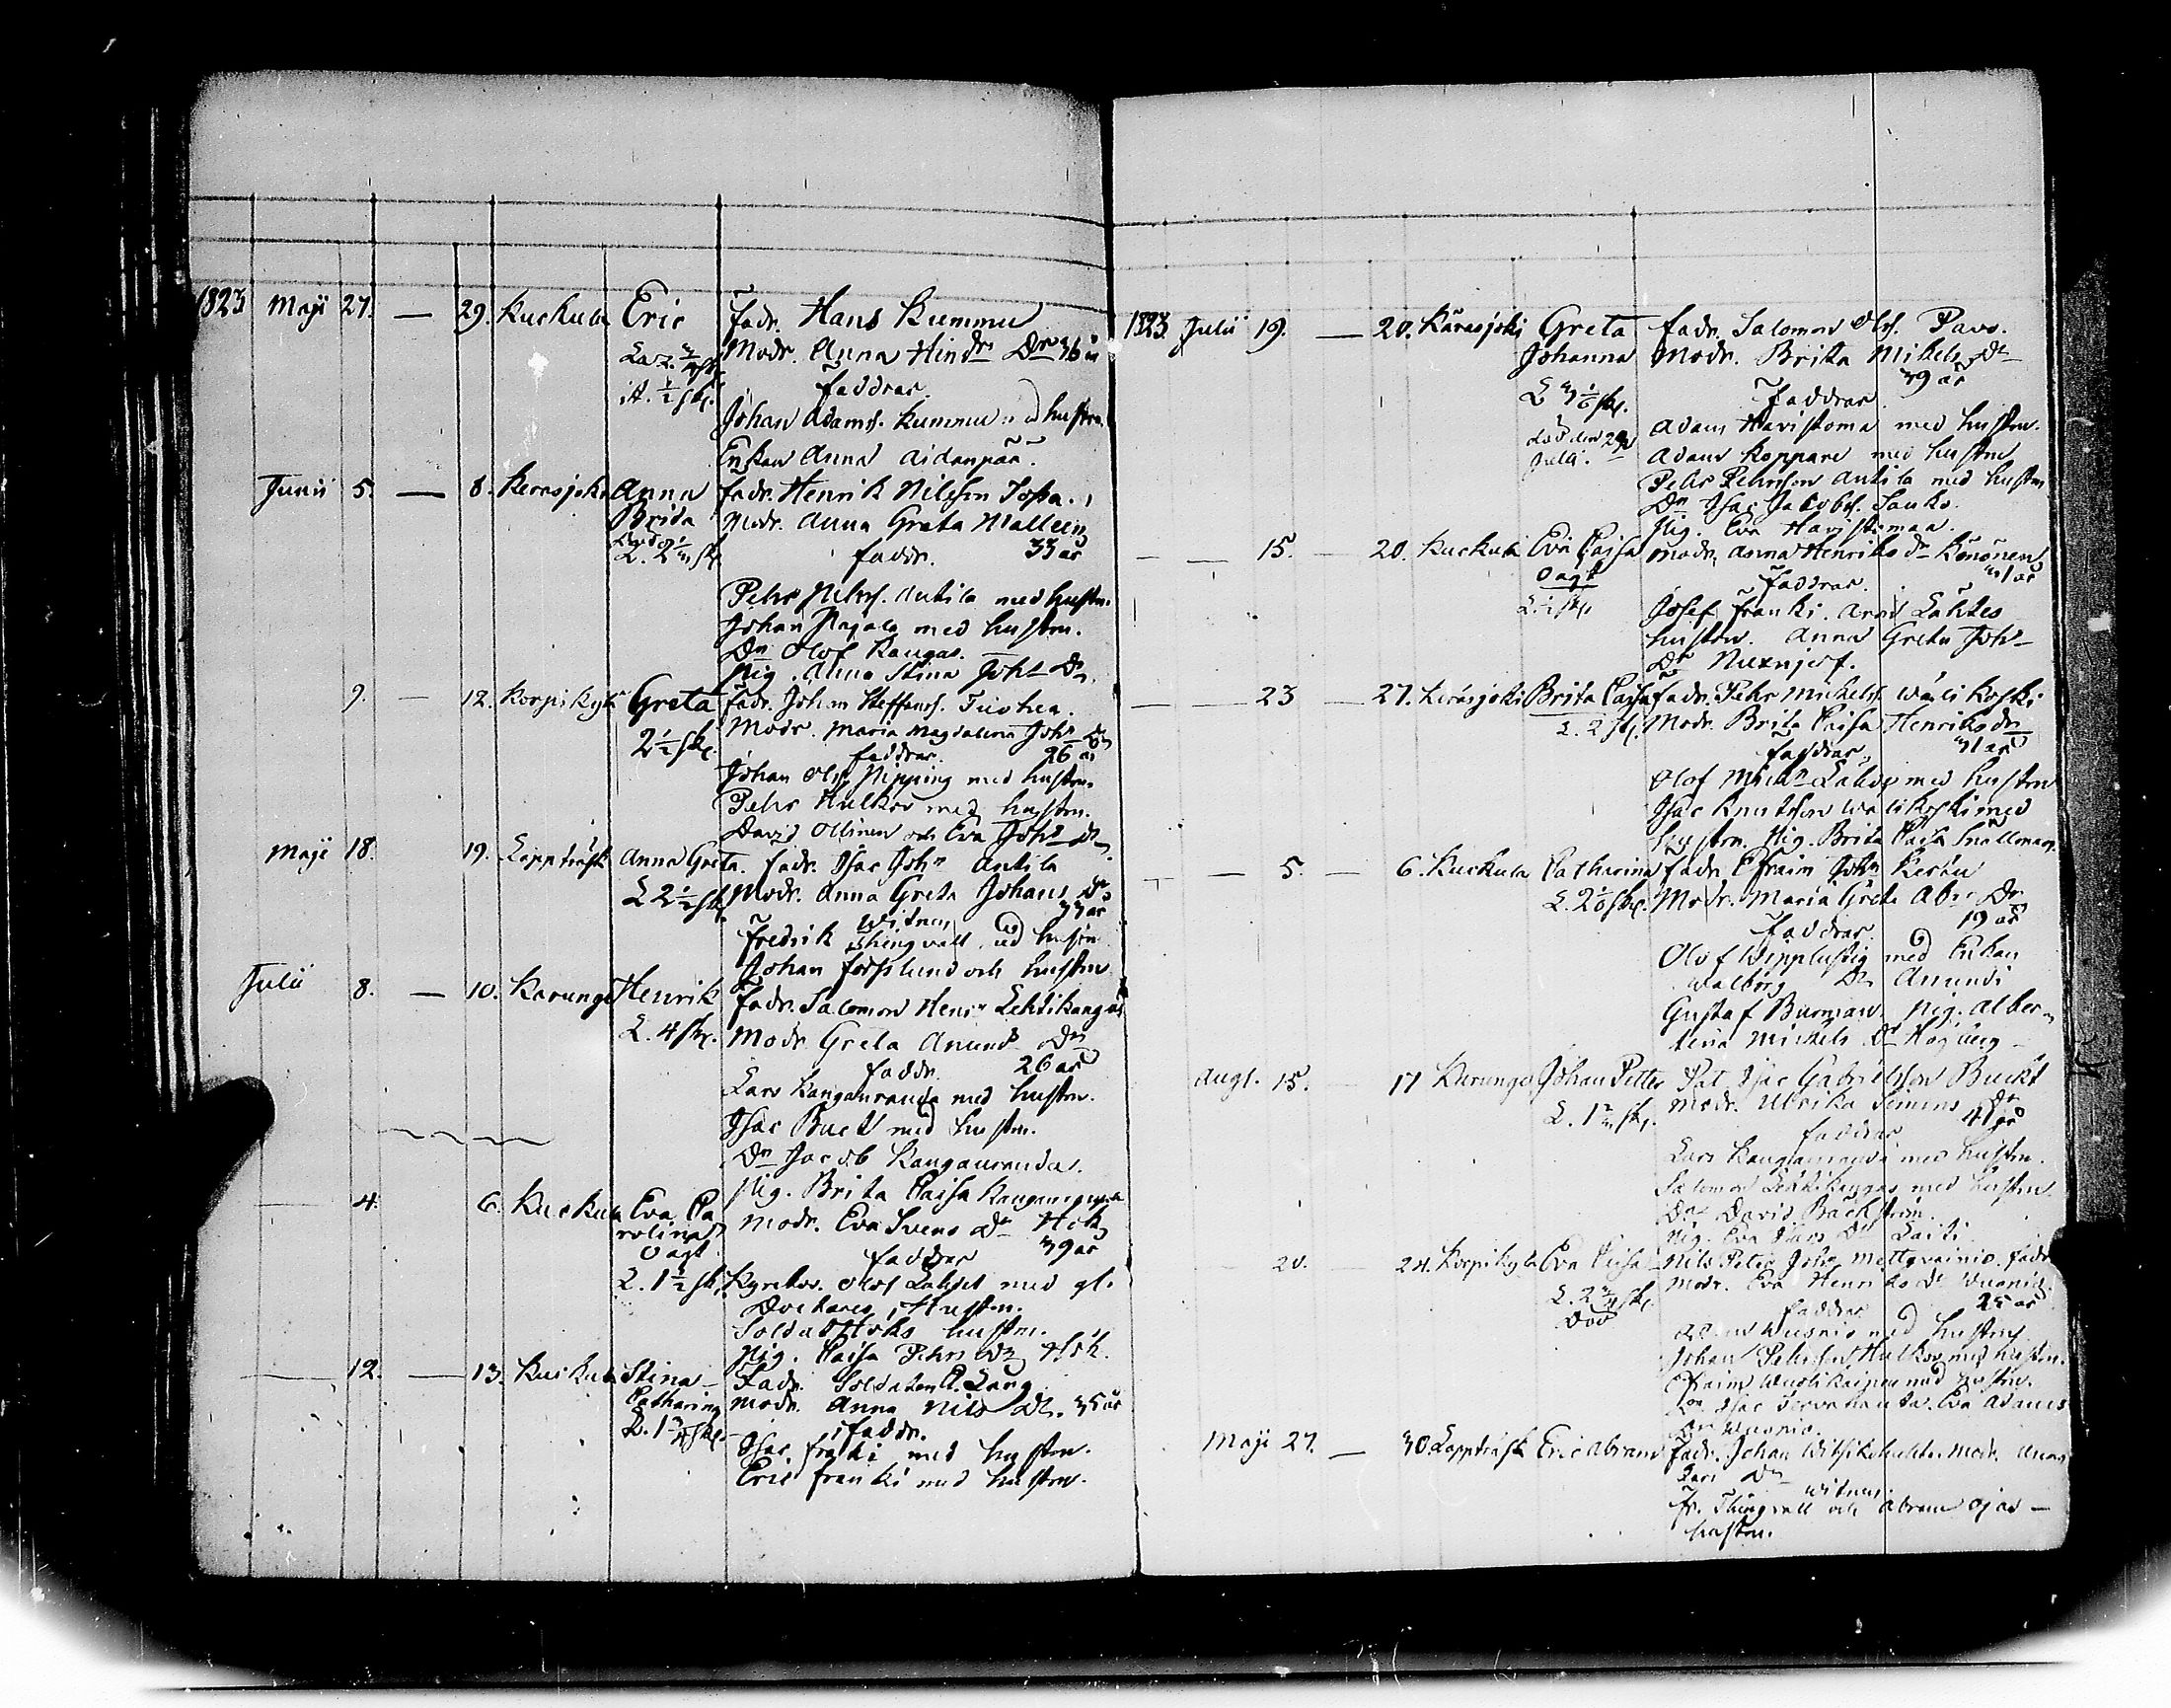 1823 Maji 27. — 29. Kuckula Eric Fadr. Hans Kummu
Modr. Anna Hindrs Dr 36 år
Faddrar.
Johan Adams. Kummu med hustru
Enkan Anna Aidanpää.
Junii 5. — 8. Kerasjoki Anna Brita Fadr. Henrik Nilsson
Modr. Anna Greta Mallein
faddr. 33 år
Pehr Pehrs. Antila med hustru.
Johan Pajala med hustru.
Dr Olof Kangas.
Pig. Anna Stina Johs Dr.
9. — 12. Korpikylä Greta 2 1/2 skl. Fadr. Johan Steffans.
Modr. Maria Magdalena Johs Dr
faddrar. 26 år
Johan Olss. Pipping med hustru.
Pehr Hulkov med hustru.
David Ollinen och Eva Johs Dr.
Maji 18. 19. Lappträsk Anna Greta. Fadr. Isac Johs Antila
L 2 1/2 skl. Modr. Anna Greta Johans Dr
Witnen 33 år
Fredrik Thingvall med hustru
Johan Forslund och hustru
Julii 8. — 10. Karungi Henrik Fadr. Salomon Henrs Lehtikangas
L. 4 skl. Modr Greta Anunds Dr
faddr. 26 år
Lars Kangasranda med hustru.
Isac Buckt med hustru.
Dr Jacob Kangasranda.
Pig. Brita Caisa Kangasranda
4. 6. Kuckula Eva Carolina Oägt Modr. Eva Svens Dr Hök
39 år
faddrar
L. 1 1/2 skl. Kyrkov. Olof Lahdet med gl.
hustru.
Soldat Höks hustru.
Pig. Caisa Pehrs Dr Hök.
— 12. — 13. Kuckula Stina Catharina Fadr. Soldaten Lång
Modr. Anna Nils Dr. 35 år
faddr.
Isac Franki med hustru.
Eric Franki med hustru.
1823 Julii 19. — 20. Kärasjoki Greta Johanna Fadr. Salomon Ols. Pavo.
Modr. Brita Mikels Dr
39 år
Faddrar.
död den 29 Julii. Adam Havistoma med hustru.
Adam Koppare med hustru
Pehr Pehrsson Antila med hustru
Dr Isac Jacobs. Lanko.
Pig. Eva Havistomaa.
— — 15. — 20. Kuckula Eva Caisa Oägt Modr. Anna Henriks Dr Könönen
31 år
Faddrar.
Josef Franki. Arvid Lahtes
hustru. Anna Greta Johs
Dr
— — 23 — 27. Kerasjoki Brita Caisa Fadr. Pehr Mickels. Wälikoski
L. 2 skl. Modr. Brita Caisa Henriks dr
faddrar. 31 år
Olof Micks Lahdes med hustru
Isac Knutsson Wälikoski med
hustru. Pig. Brita Caisa Snällman.
— — 5. — 6. Kuckula Catharina Fadr. Efraim Johs Kerän
Modr. Maria Greta Abr. Dr
19 år
faddrar.
Olof Wipplustig med Enkan
Walborg Dr Anundi
Gustaf Burman. Pig. Albertina Mickels Dr Högberg
Augs. 15. 17 Karungi Johan Petter Pat. Isac Gabrielsson Buckt
Modr. Ulrika Simons Dr
41 år
faddrar
Lars Kangasranda med hustru.
Salomon Lehtikangas med hustru.
Dr David Bäckström.
Pig. Eva Lars Dr Laiti.
20. 24. Korpikylä Eva Caisa Nils Peter Johs Mettävainio. fadr
Död Modr. Eva Henriks Dr Wuonio
25 år
faddrar
Adam Wuonio med hustru
Johan Pehrsson Hulkov med hustru.
Efraim med hustru.
Isac Tervahauta. Eva Adams
Dr Wuonio.
Maji 27. — 30. Lappträsk Eric Abram Fadr. Johan Witsikohukka. Modr. Anna
Lars Dr
witnen
Fr. Thingvall och Abram Ojas
hustru.